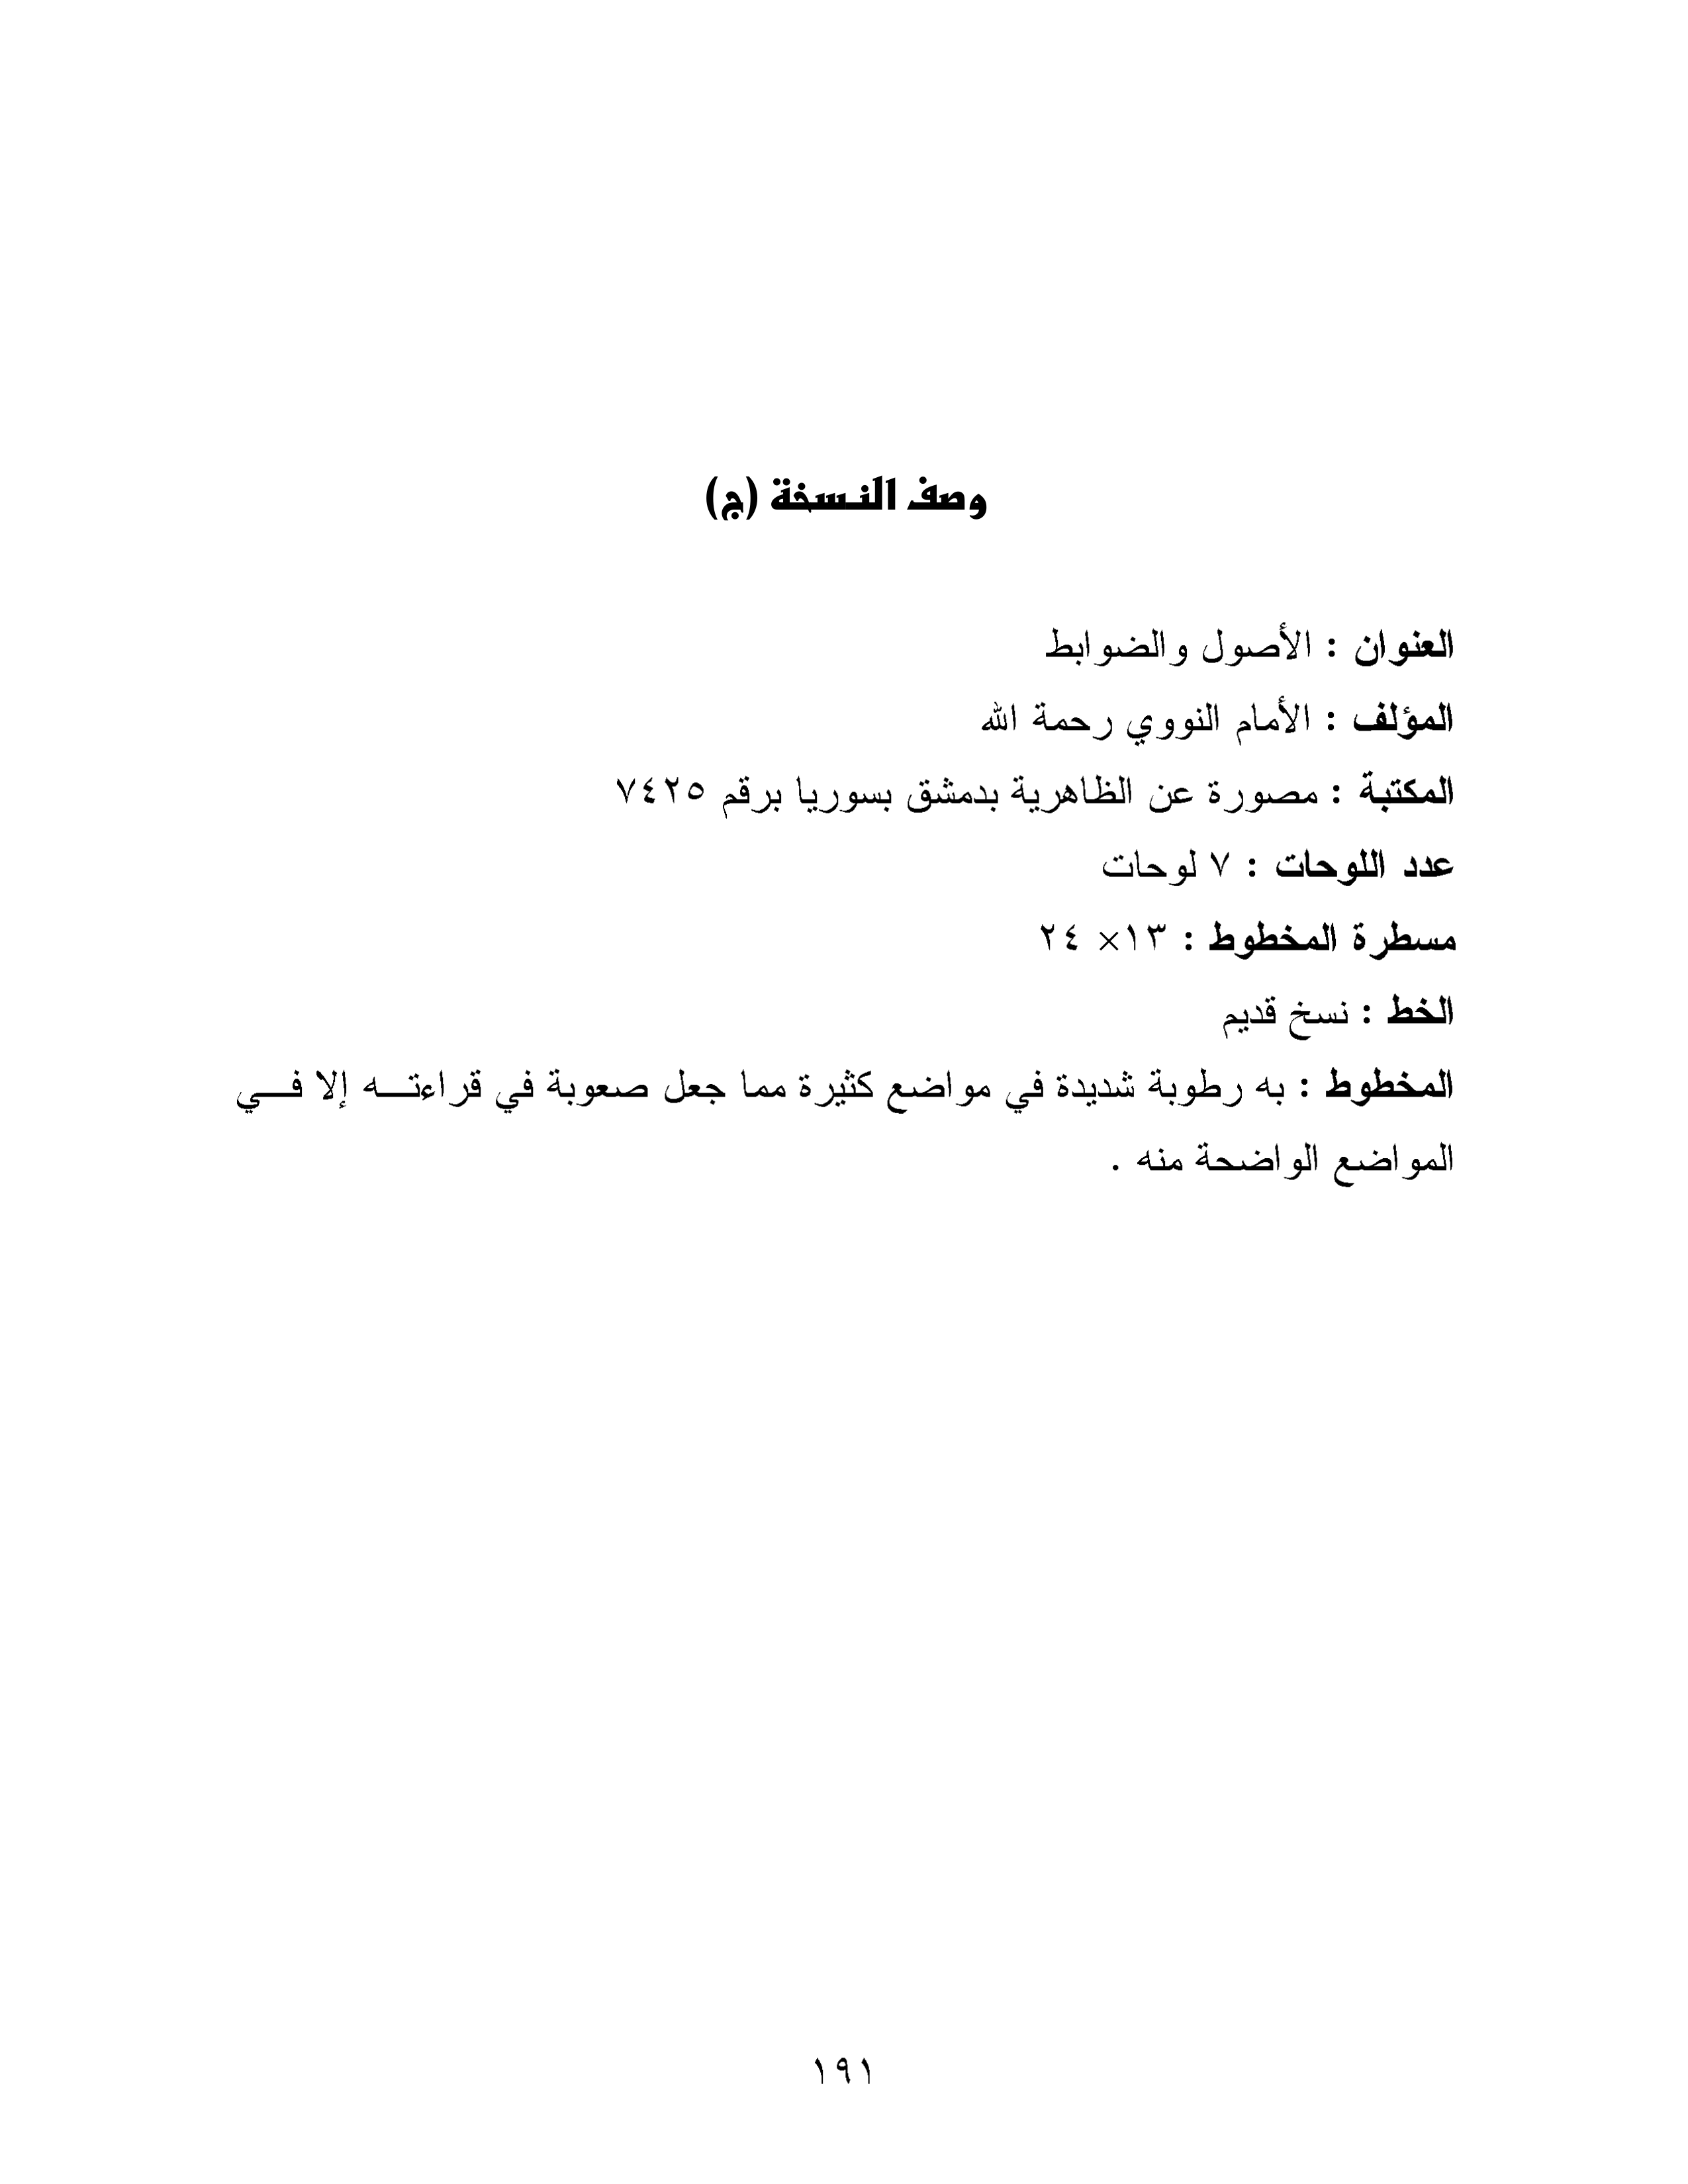 وصف النسخة (ج)
العنوان : الأصول والضوابط
المؤلف : الأمام النووي رحمة الله
المكتبة : مصورة عن الظاهرية بدمشق بسوريا برقم ٧٤٢٥
عدد اللوحات : ٧ لوحات
مسطرة المخطوط : ١٣× ٢٤
الخط : نسخ قديم
المخطوط : به رطوبة شديدة في مواضع كثيرة مما جعل صعوبة في قراءتـــه إلا فـــي
المواضع الواضحة منه .
١٩١